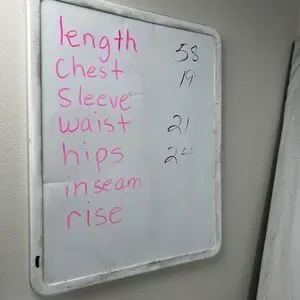 length 58
Chest 19
Sleeve
waist 21
hips 24
inseam
rise